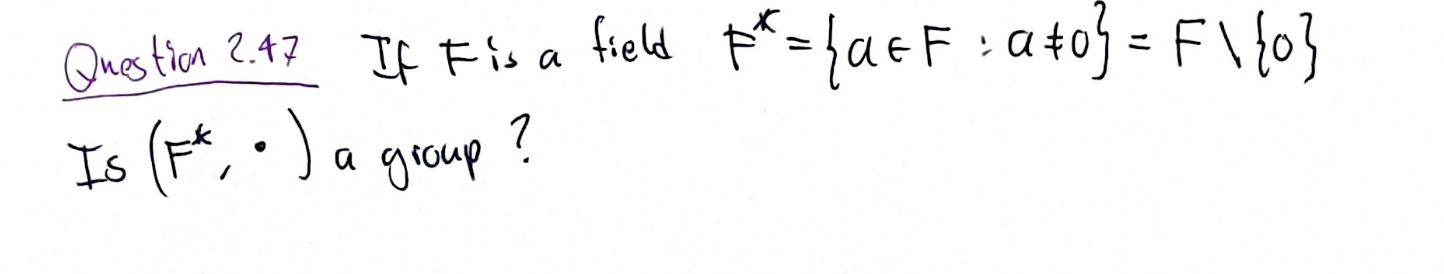 Question 2.47 If F is a field F* = {a ∈ F : a ≠ 0} = F \ {0}
Is (F*, ·) a group ?